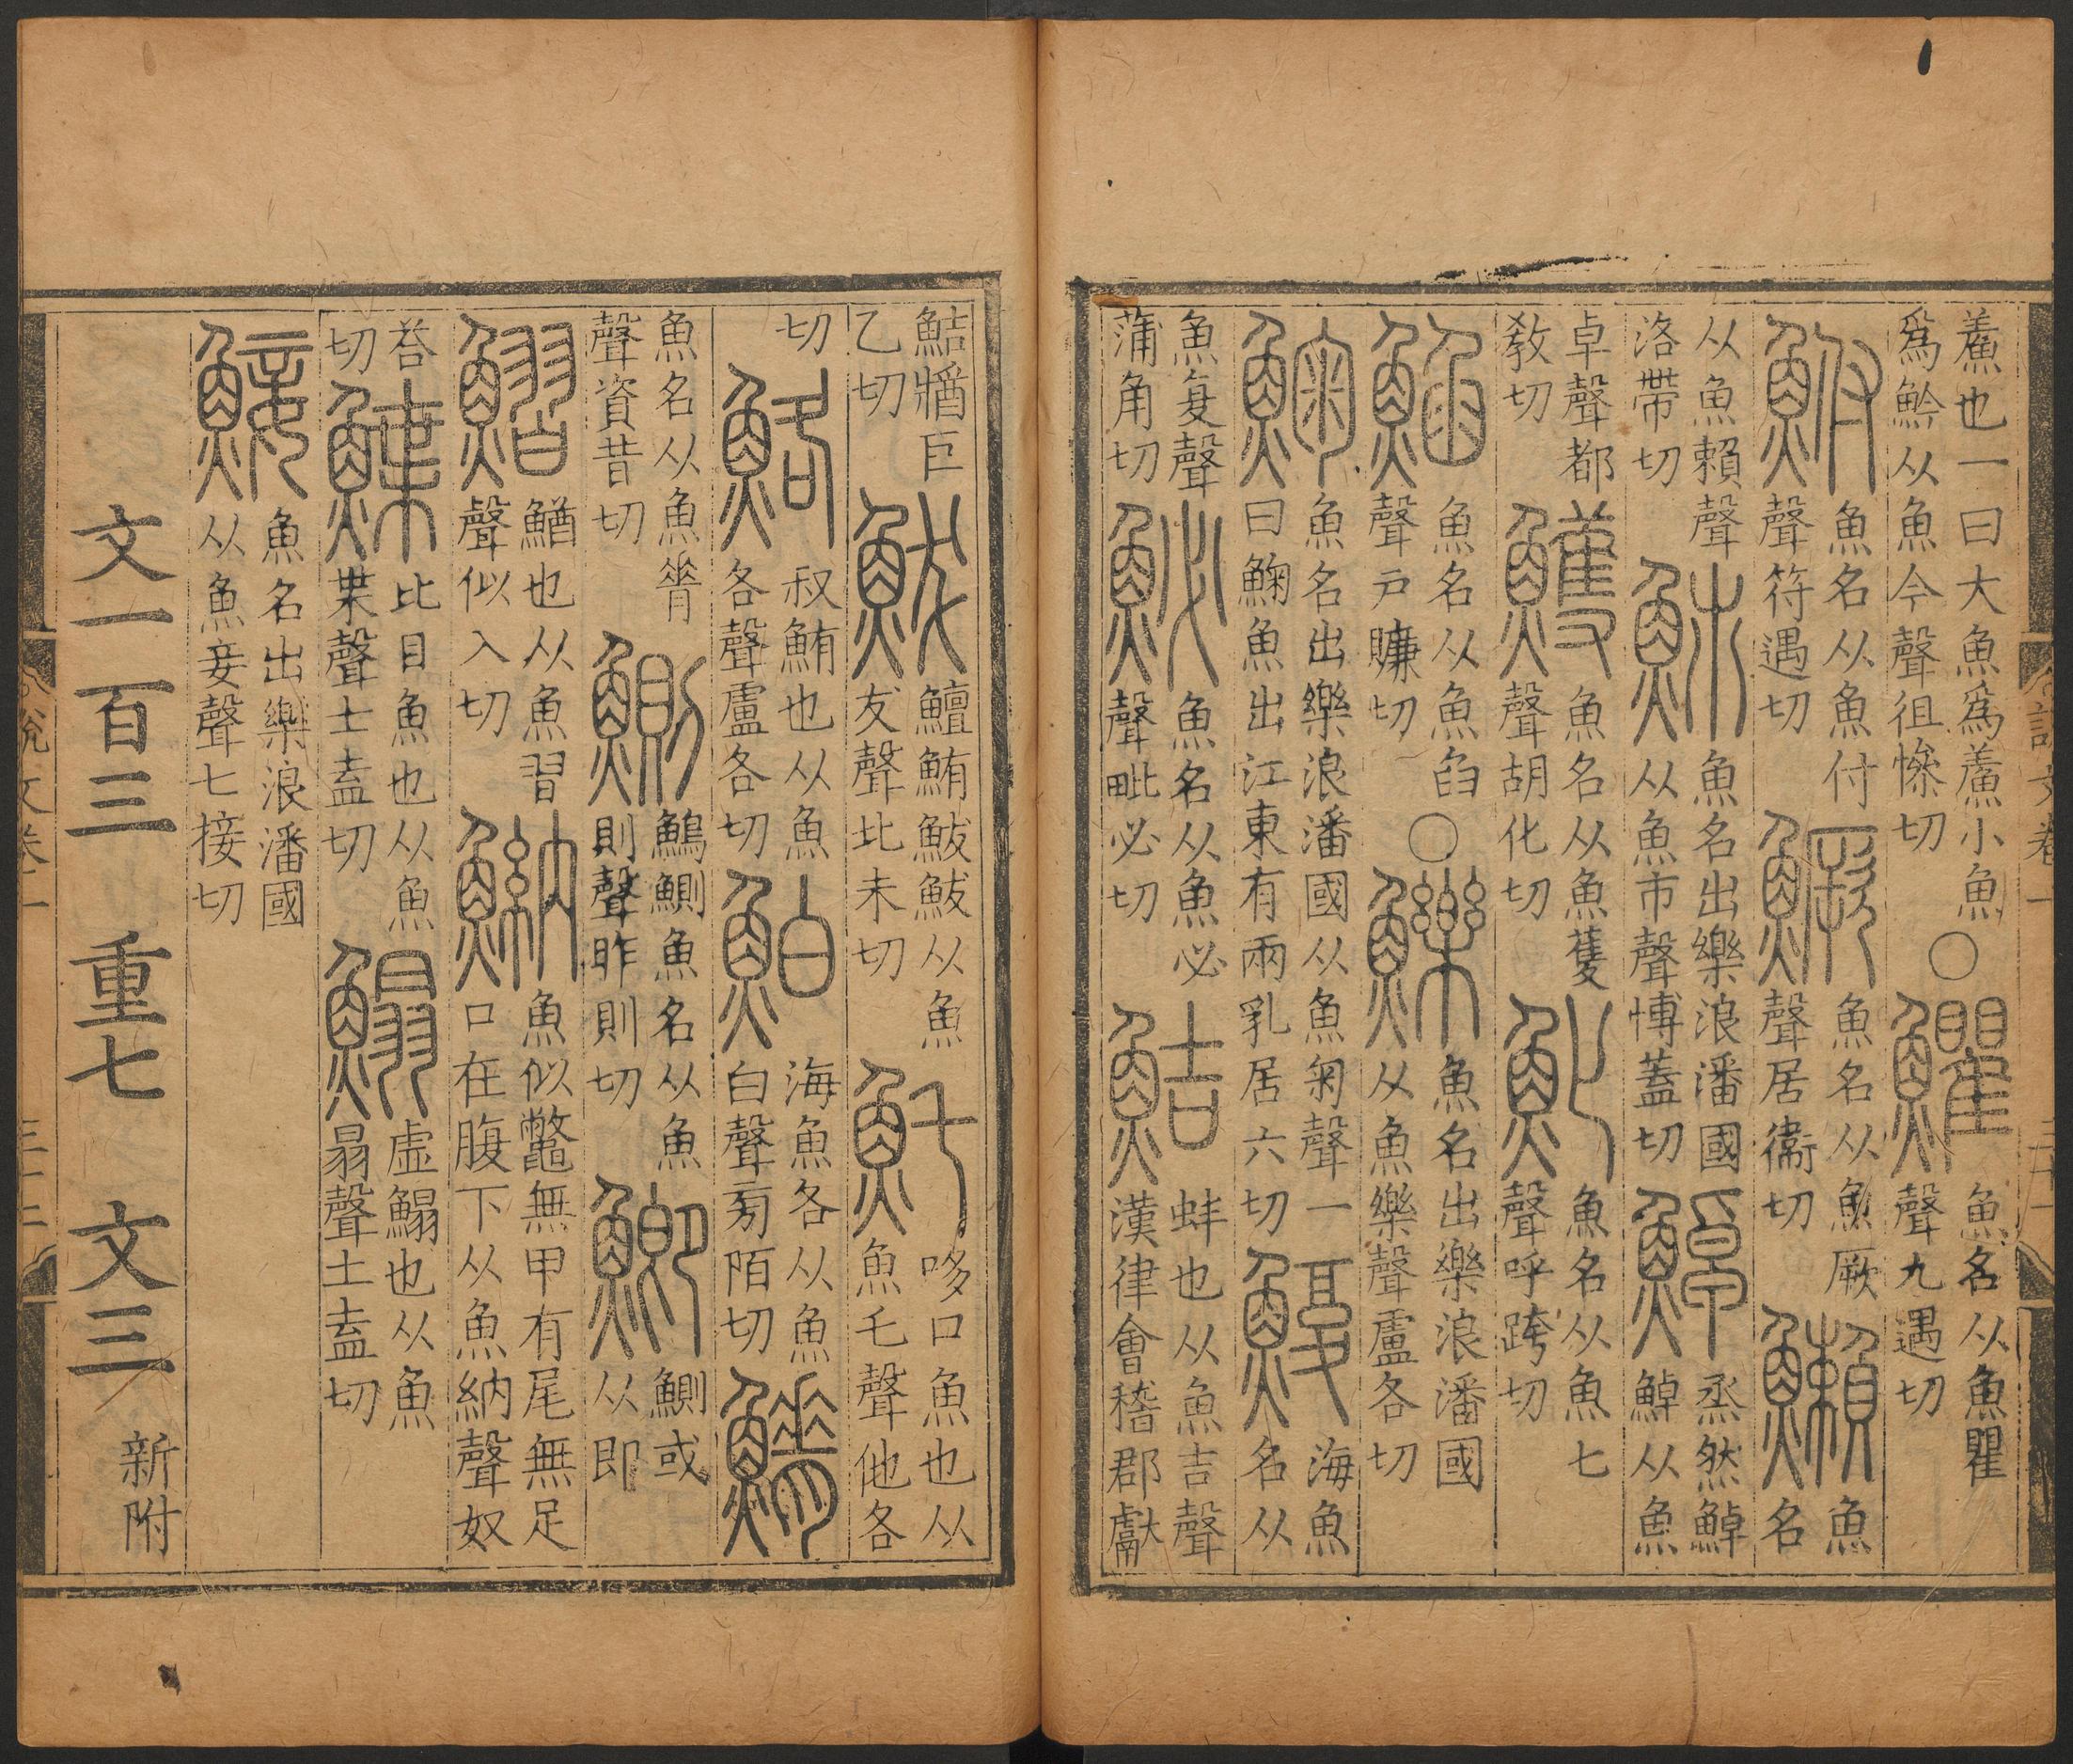 鮺也一曰大魚爲鮺小魚
爲魿从魚今聲徂慘切〇
魚名从魚瞿
聲九遇切
鮒魚名从魚付
聲符遇切
鱖魚名从魚厥
聲居衞切
鰻魚名
从魚賴聲
洛帶切
魚名出樂浪潘國
从魚巿聲博蓋切
烝然鯙
鯙从魚
卓聲都
敎切
鱯魚名从魚蒦
聲胡化切
魤魚名从魚七
聲呼跨切
鮨魚名从魚臽
聲戶賺切〇
鱳魚名出樂浪潘國
从魚樂聲盧各切
魚名出樂浪潘國从魚匊聲一
曰鯯魚出江東有兩乳居六切
鰒海魚
名从
魚复聲
蒲角切
魚名从魚必
聲毗必切
鮚蚌也从魚吉聲
漢律會稽郡獻
鮚醬巨
乙切
鱣鮪鮁鮁从魚
犮聲北末切
哆口魚也从
魚乇聲他各
切
叔鮪也从魚
各聲盧各切
鮊海魚各从魚
白聲㫄陌切
魚名从魚脊
聲資昔切
鰂烏鰂魚名从魚
則聲昨則切
鯽鰂或
从即
鰼鰌也从魚習
聲似入切
魶魚似鼈無甲有尾無足
口在腹下从魚納聲奴
荅
切
鰈比目魚也从魚
枼聲土盍切
鰨虛鰨也从魚
㬱聲土盍切
魚名出樂浪潘國
从魚妾聲七接切
文一百三 重七 文三 新附